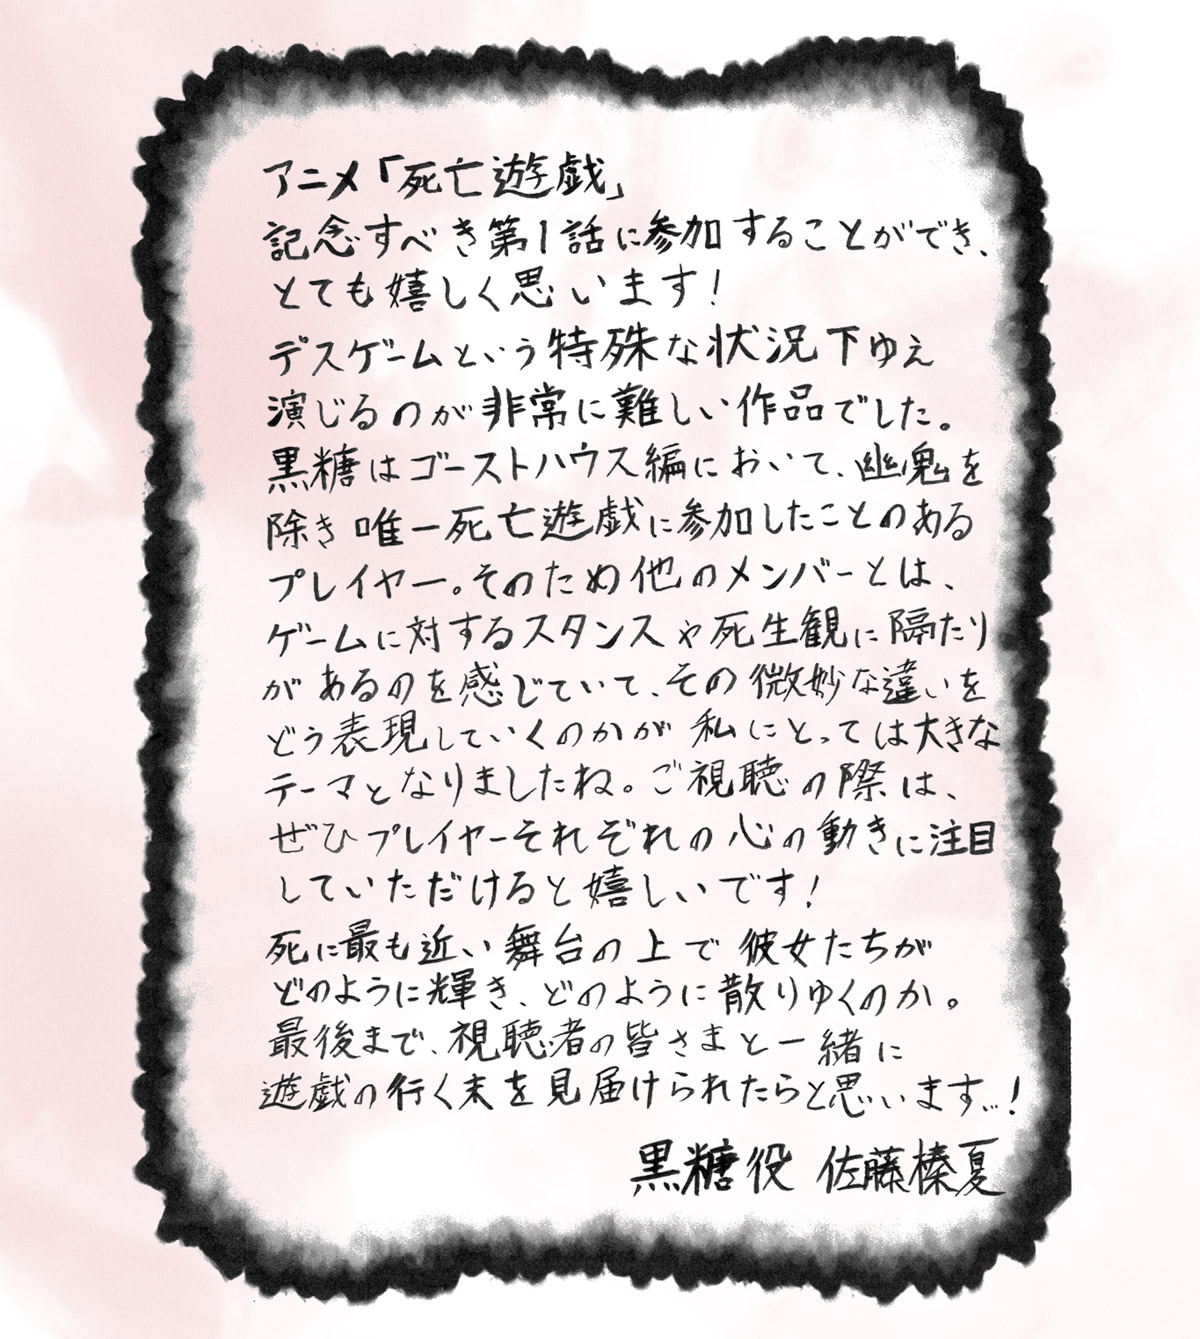 アニメ「死亡遊戯」
記念すべき第1話に参加することができ、
とても嬉しく思います!
デスゲームという特殊な状況下ゆえ
演じるのが非常に難しい作品でした。
黒糖はゴーストハウス編において、幽鬼を
除き唯一死亡遊戯に参加したことのある
プレイヤー。そのため他のメンバーとは、
ゲームに対するスタンスや死生観に隔たり
があるのを感じていて、その微妙な違いを
どう表現していくのかが私にとっては大きな
テーマとなりましたね。ご視聴の際は、
ぜひプレイヤーそれぞれの心の動きに注目
していただけると嬉しいです!
死に最も近い舞台の上で彼女たちが
どのように輝き、どのように散りゆくのか。
最後まで、視聴者の皆さまと一緒に
遊戯の行く末を見届けられたらと思います…!
黒糖役 佐藤榛夏